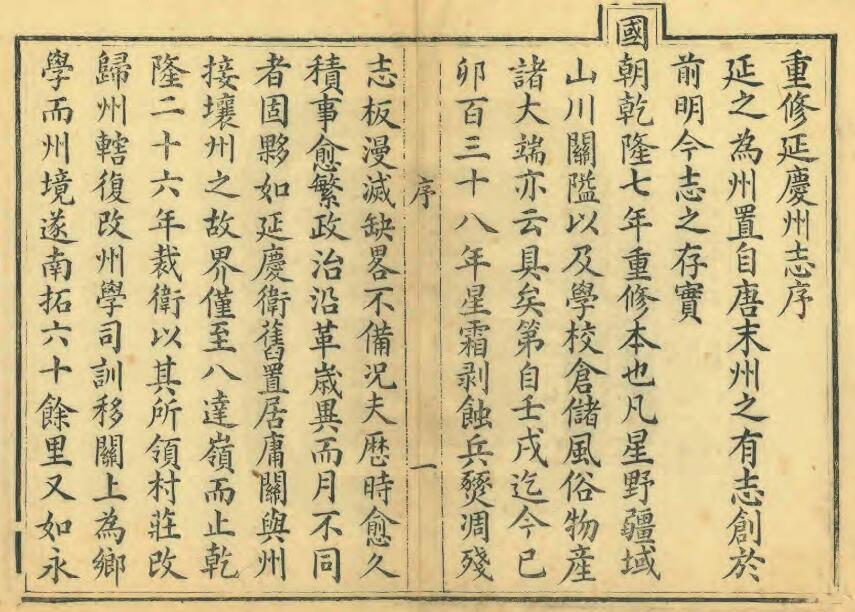 重修延慶州志序
延之為州置自唐末州之有志創於
前明今志之存實
國朝乾隆七年重修本也凡星野疆域
山川關隘以及學校倉儲風俗物產
諸大端亦云具矣第自壬戌迄今已
卯百三十八年星霜剥蝕兵燹凋殘
序
一
志板漫滅缺畧不備况夫歷時愈久
積事愈繁政治沿革歲異而月不同
者固夥如延慶衛舊置居庸關與州
接壤州之故界僅至八達嶺而止乾
隆二十六年裁衛以其所領村莊改
歸州轄復改州學司訓移關上為鄉
學而州境遂南拓六十餘里又如永